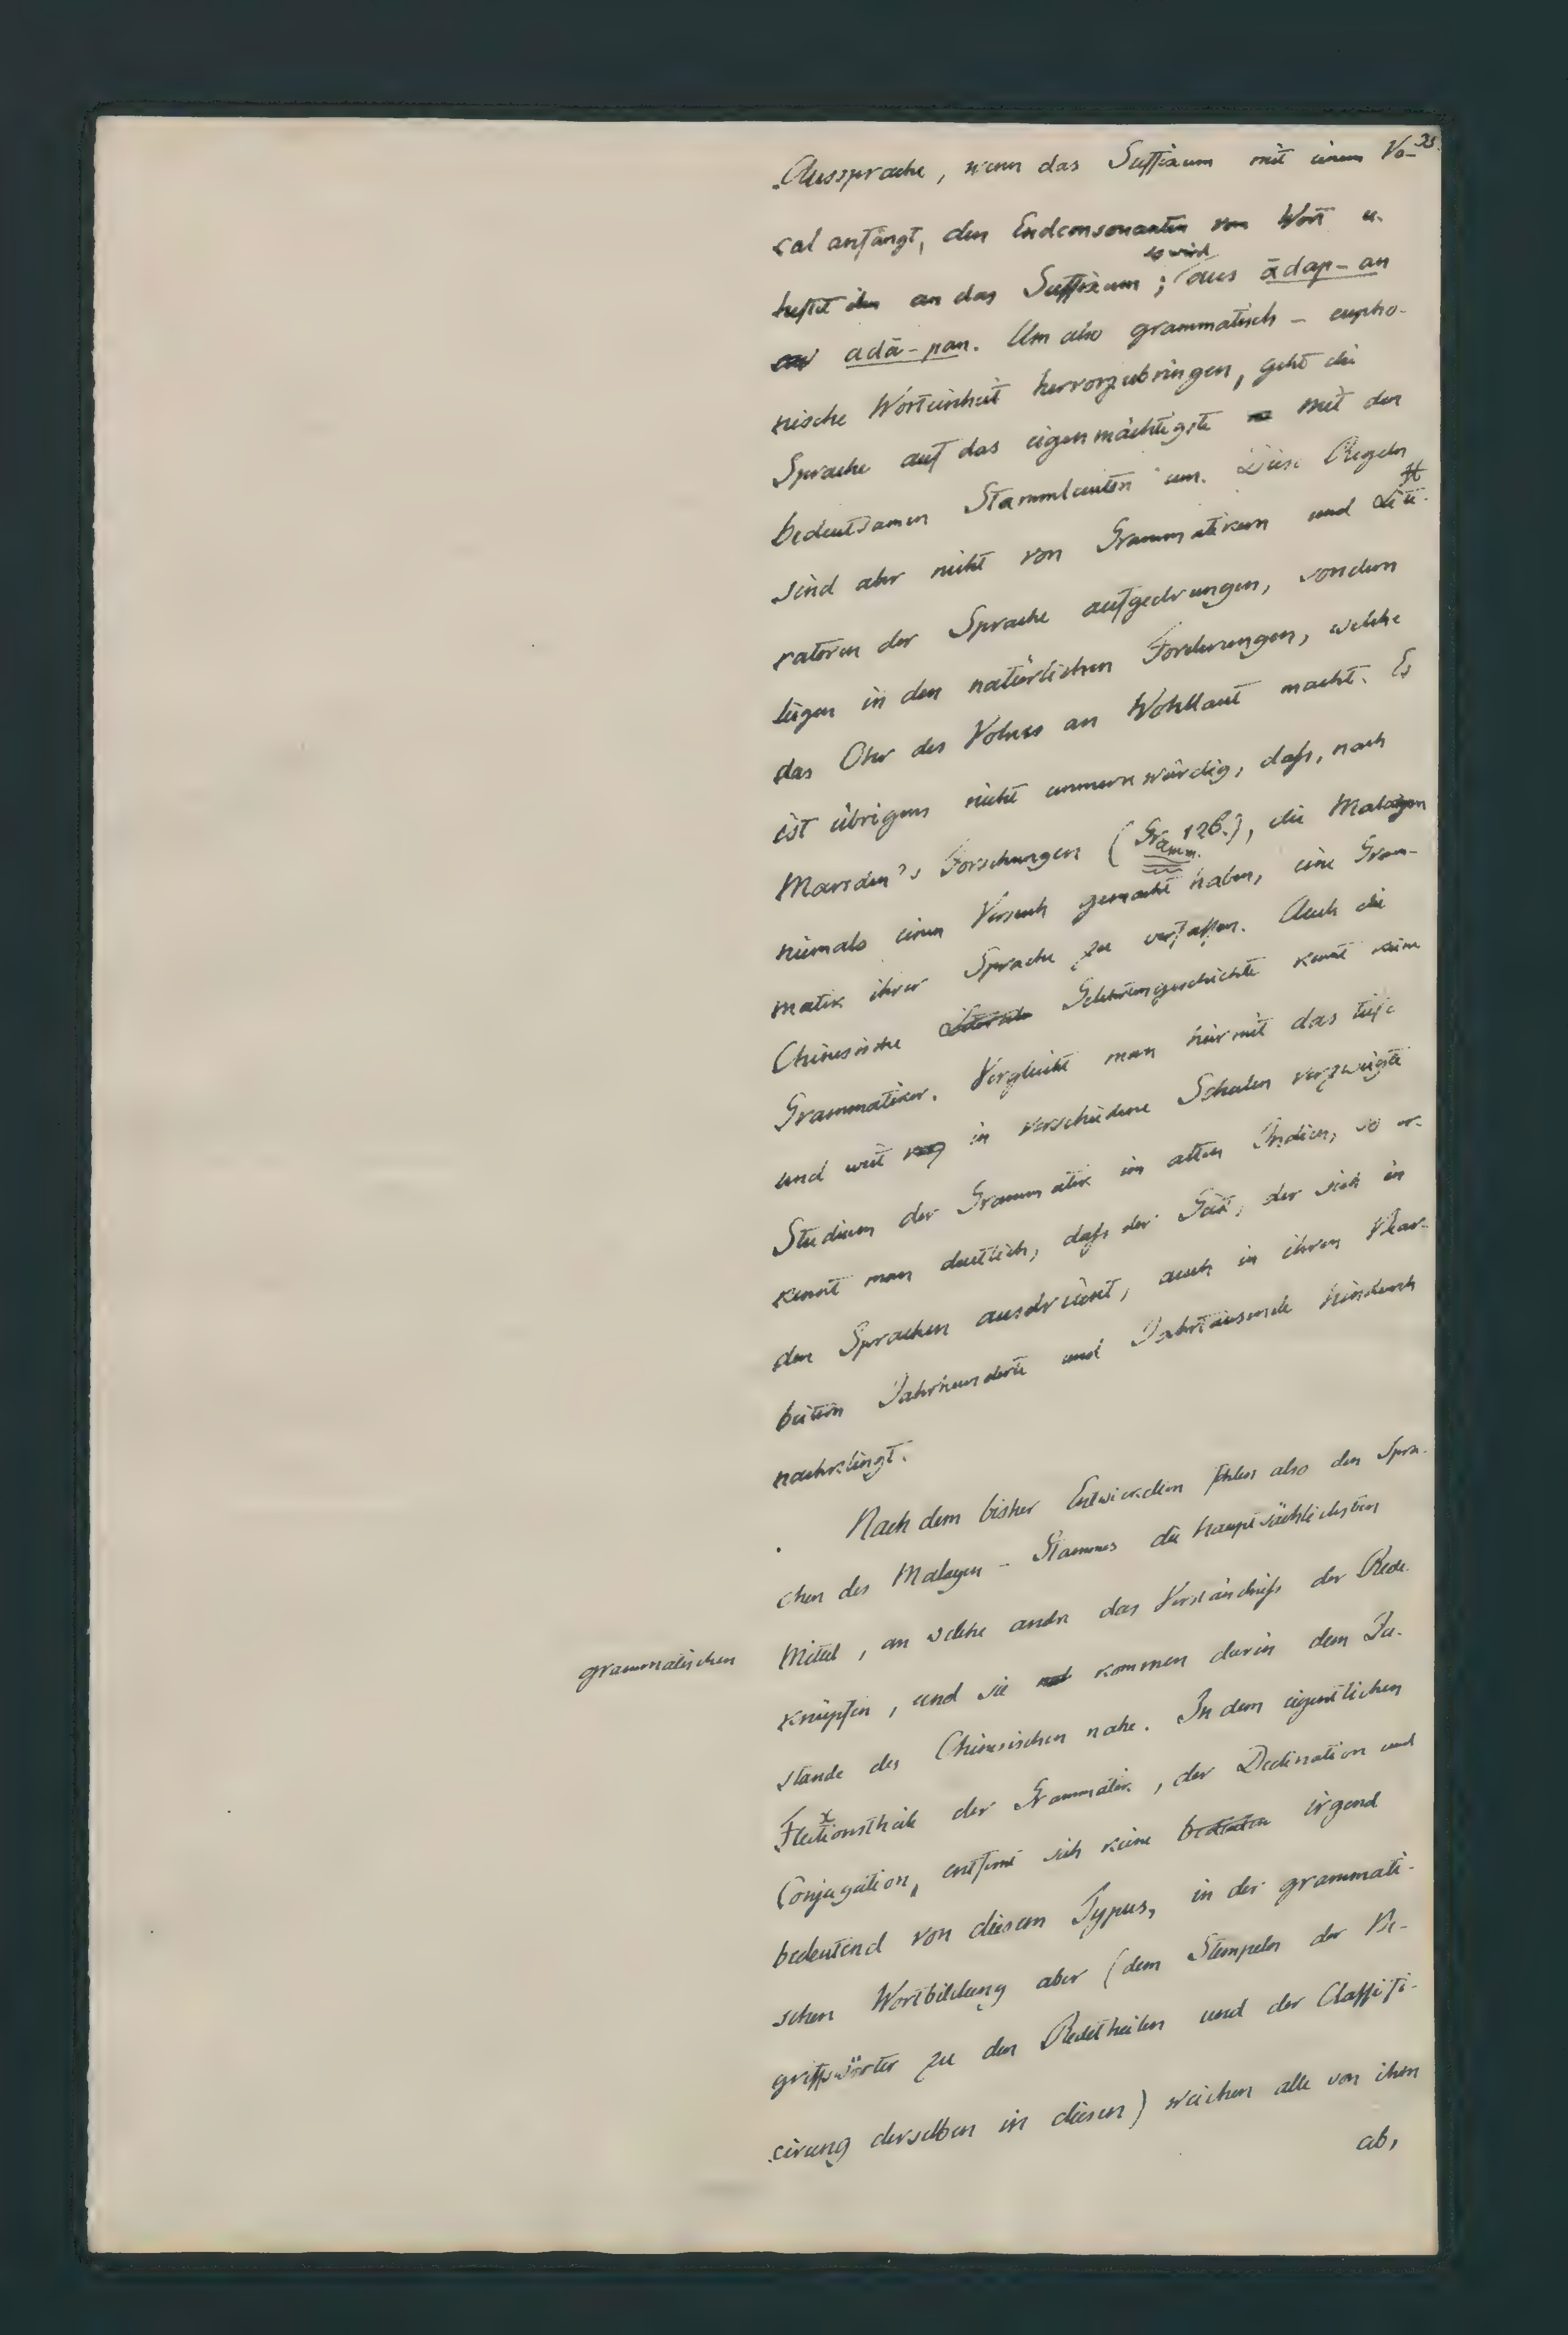 35.
Aussprache, wenn das Suffixum mit einem Vo-
cal anfängt, den Endconsonanten vom Wort u.
heftet ihn an das Suffixum; es wird aus ādap-an
adā-pan. Um also grammatisch-eupho-
nische Worteinheit hervorzubringen, geht die
Sprache auf das eigenmächtigste mit den
bedeutsamen Stammlauten um. Diese Regeln
sind aber nicht von Grammatikern und Litte-
ratoren der Sprache aufgedrungen, sondern
liegen in den natürlichen Forderungen, welche
das Ohr des Volkes an Wohllaut macht. Es
ist übrigens nicht unmerkwürdig, daſs, nach
Marsden's Forschungen (Gramm. 126.), die Malayen
niemals einen Versuch gemacht haben, eine Gram-
matik ihrer Sprache zu verfaſsen. Auch die
Chinesische Gelehrtengeschichte kennt keine
Grammatiker. Vergleicht man hiermit das tiefe
und weit in verschiedene Schulen verzweigte
Studium der Grammatik im alten Indien, so er-
kennt man deutlich, daſs der Geist, der sich in
den Sprachen ausdrückt, auch in ihren Bear-
beitern Jahrhunderte und Jahrtausende hindurch
nachklingt.
Nach dem bisher Entwickelten fehlen also den Spra-
chen des Malayen-Stammes die hauptsächlichsten
grammatischen Mittel, an welche andre das Verständniſs der Rede
knüpfen, und sie kommen darin dem Zu-
stande des Chinesischen nahe. In dem eigentlichen
Flexionstheile der Grammatik, der Declination und
Conjugation, entfernt sich keine irgend
bedeutend von diesem Typus, in der grammati-
schen Wortbildung aber (dem Stempeln der Be-
griffswörter zu den Redetheilen und der Claſsifi-
cirung derselben in diesen) weichen alle von ihm
ab,